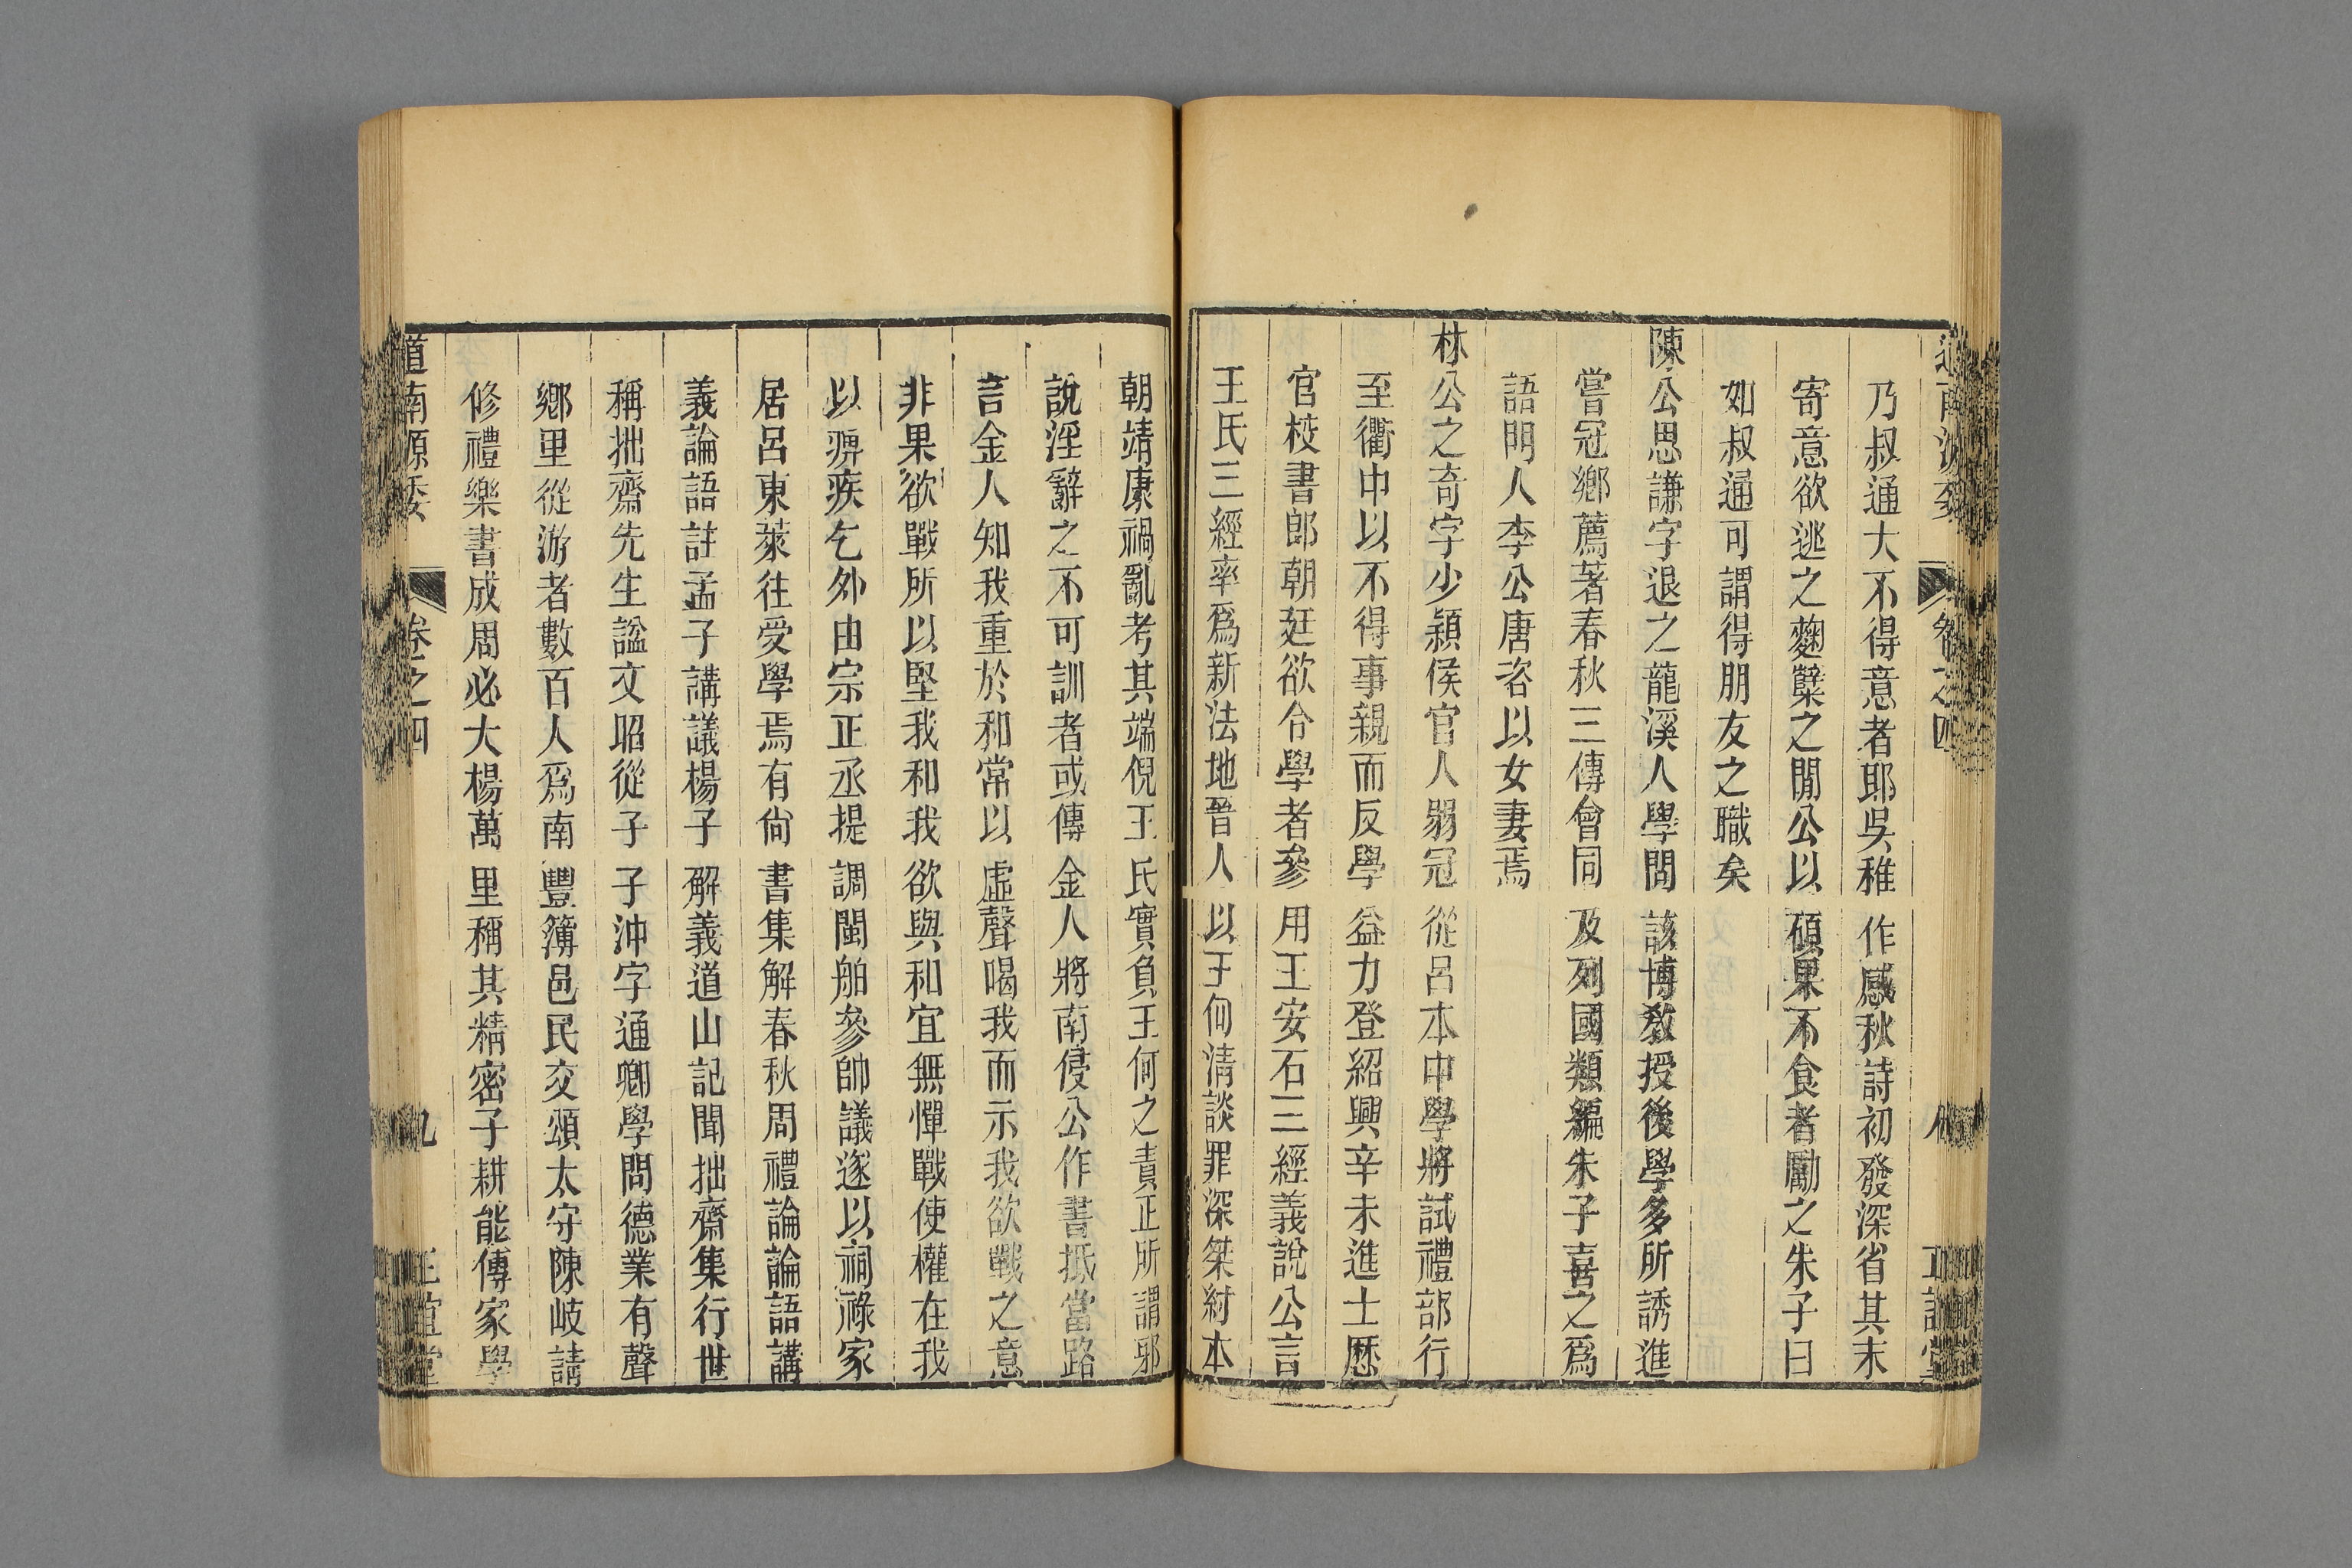 乃叔通大不得意者耶吳稚作感秋詩初發深省其末
寄意欲逃之麴糵之閒公以碩果不食者勵之朱子曰
如叔通可謂得朋友之職矣
陳公思謙字退之龍溪人學問該博敎授後學多所誘進
嘗冠鄉薦著春秋三傳會同及列國類編朱子喜之爲
語門人李公唐咨以女妻焉
林公之奇字少穎侯官人弱冠從呂本中學將試禮部行
至衢中以不得事親而反學益力登紹興辛未進士歷
官校書郎朝廷欲令學者參用王安石三經義說公言
王氏三經率爲新法地晉人以王何淸談罪深桀紂本
朝靖康禍亂考其端倪王氏實負王何之責正所謂邪
說淫辭之不可訓者或傳金人將南侵公作書抵當路
言金人知我重於和常以虛聲喝我而示我欲戰之意
非果欲戰所以堅我和我欲與和宜無憚戰使權在我
以痹疾乞外由宗正丞提調閩舶參帥議遂以祠祿家
居呂東萊往受學焉有尙書集解春秋周禮論論語講
義論語註孟子講議楊子解義道山記聞拙齋集行世
稱拙齋先生諡文昭從子子沖字通卿學問德業有聲
鄉里從游者數百人爲南豐簿邑民交頌太守陳岐請
修禮樂書成周必大楊萬里稱其精密子耕能傳家學
道南源委 卷之四 九 正誼堂